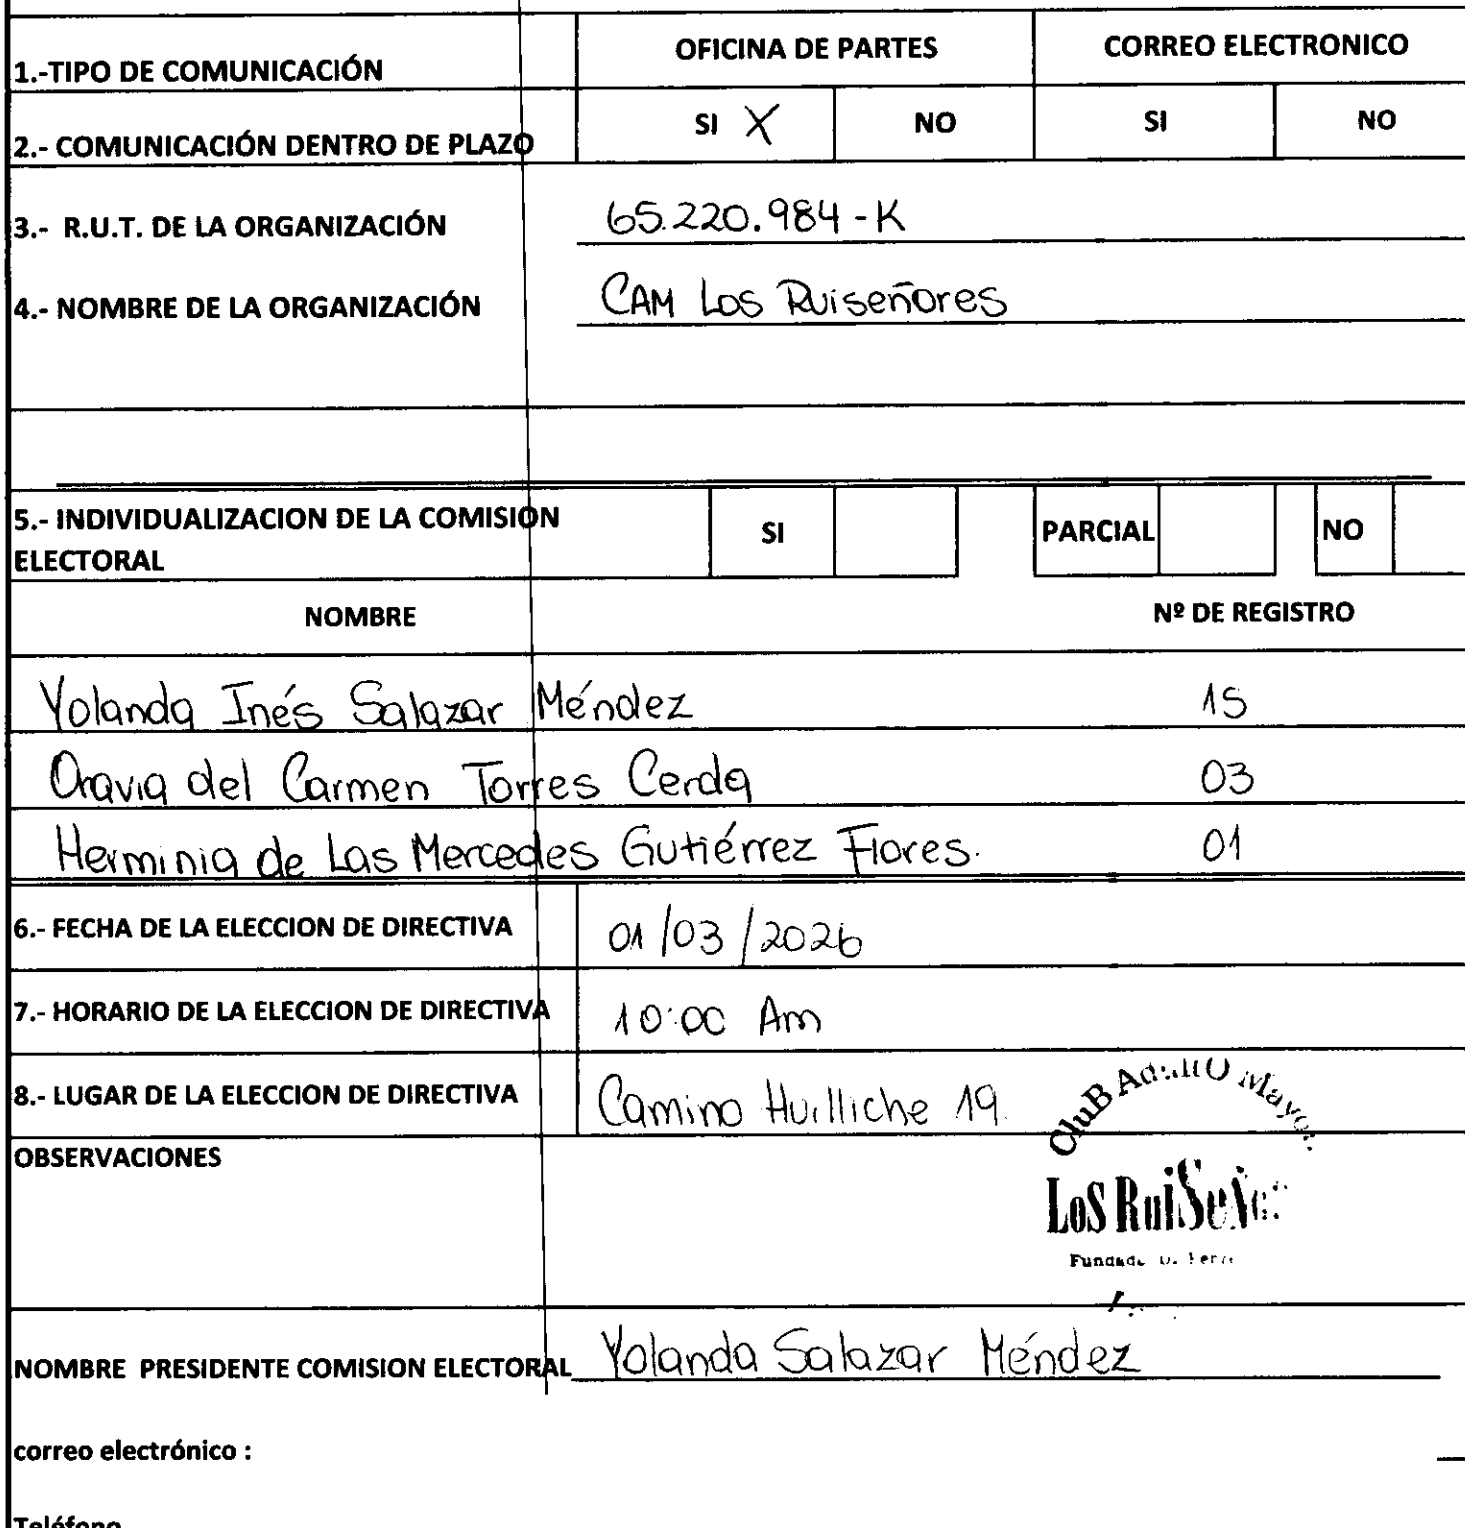 1.-TIPO DE COMUNICACIÓN OFICINA DE PARTES CORREO ELECTRONICO
2.- COMUNICACIÓN DENTRO DE PLAZO SI X NO SI NO
3.- R.U.T. DE LA ORGANIZACIÓN 65.220.984-K
4.- NOMBRE DE LA ORGANIZACIÓN CAM Los Ruiseñores
5.- INDIVIDUALIZACION DE LA COMISION
ELECTORAL SI PARCIAL NO
NOMBRE Nº DE REGISTRO
Yolanda Inés Salazar Méndez 15
Oravia del Carmen Torres Cerda 03
Herminia de Las Mercedes Gutiérrez Flores. 01
6.- FECHA DE LA ELECCION DE DIRECTIVA 01/03/2026
7.- HORARIO DE LA ELECCION DE DIRECTIVA 10:00 Am
8.- LUGAR DE LA ELECCION DE DIRECTIVA Camino Huilliche 19.
CluB Adulto Mayor
OBSERVACIONES
Los Ruiseñor
NOMBRE PRESIDENTE COMISION ELECTORAL Yolanda Salazar Méndez
correo electrónico :
Teléfono